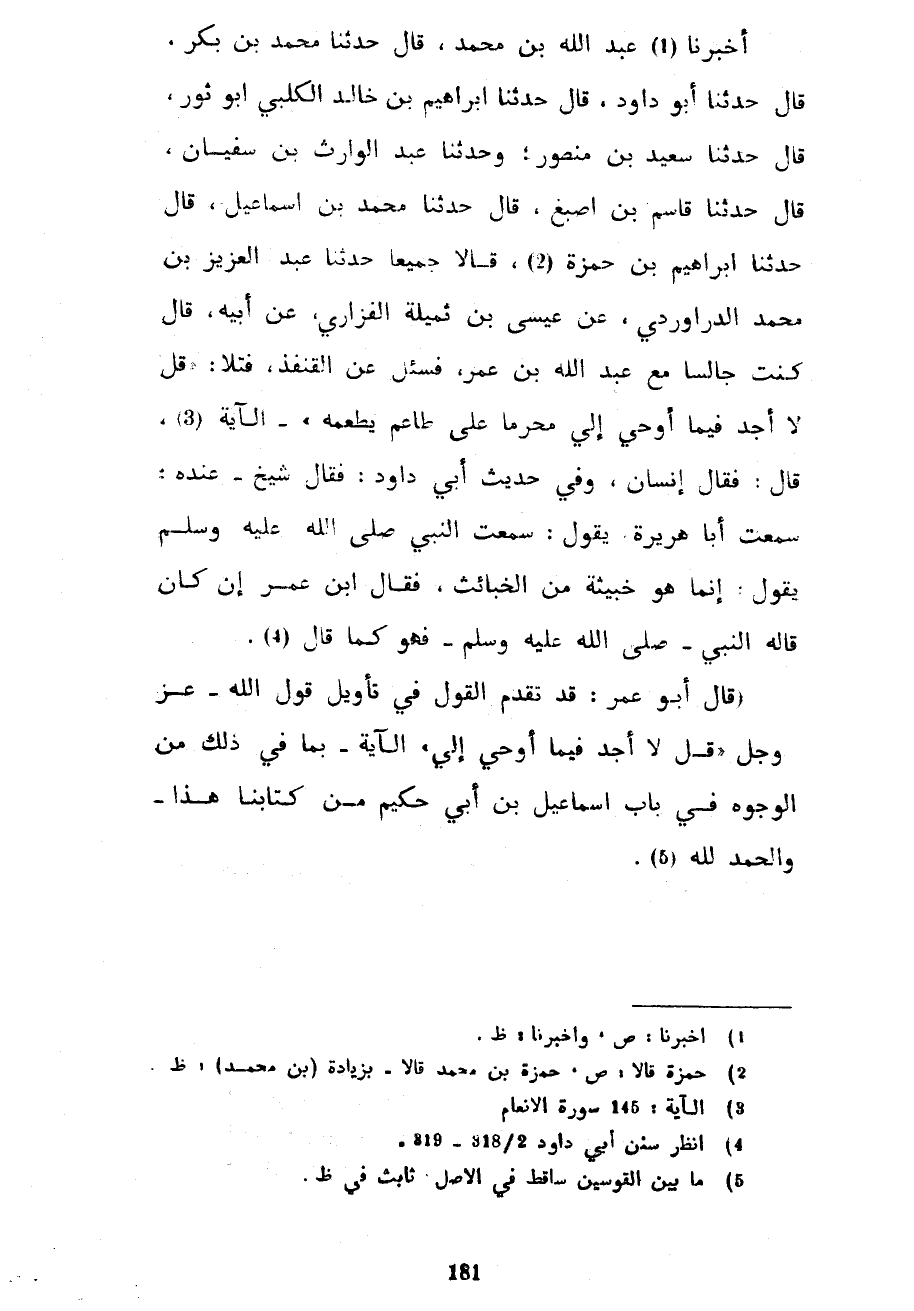 أخبرنا (1) عبد الله بن محمد ، قال حدثنا محمد بن بكر .
قال حدثنا أبو داود . قال حدثنا ابراهيم بن خالد الكلبي ابو ثور ،
قال حدثنا سعيد بن منصور ؛ وحدثنا عبد الوارث بن سفيـان ،
قال حدثنا قاسم بن اصبغ ، قال حدثنا محمد بن اسماعيل ، قال
حدثنا ابراهيم بن حمزة (2) ، قـالا جميعا حدثنا عبد العزيز بن
محمد الدراوردي ، عن عيسى بن ثميلة الفزاري، عن أبيه، قال
كنت جالسا مع عبد الله بن عمر، فسئل عن القنفذ، فتلا : «قل
لا أجد فيما أوحي إلي محرما على طاعم يطعمه » ـ الآية (3) .
قال : فقال إنسان ، وفي حديث أبي داود : فقال شيخ ـ عنده :
سمعت أبا هريرة يقول : سمعت النبي صلى الله عليه وسلـم
يقول : إنما هو خبيثة من الخبائث ، فقـال ابن عمـر إن كان
قاله النبي ـ صلى الله عليه وسلم ـ فهو كما قال (4) .
(قال أبـو عمر : قد تقدم القول في تأويل قول الله ـ عـز
وجل «قـل لا أجد فيما أوحي إلي» الآية ـ بما في ذلك من
الوجوه فـي باب اسماعيل بن أبي حكيم مـن كتابنـا هـذا ـ
والحمد لله (5) .
1) اخبرنا : ص ، واخبرنا : ظ .
2) حمزة قالا : ص ، حمزة بن محمد قالا ـ بزيادة (بن محمـد) : ظ .
3) الآية : 145 سورة الانعام
4) انظر سنن أبي داود 318/2 ـ 319 .
5) ما بين القوسين ساقط في الاصل ، ثابث في ظ .
181